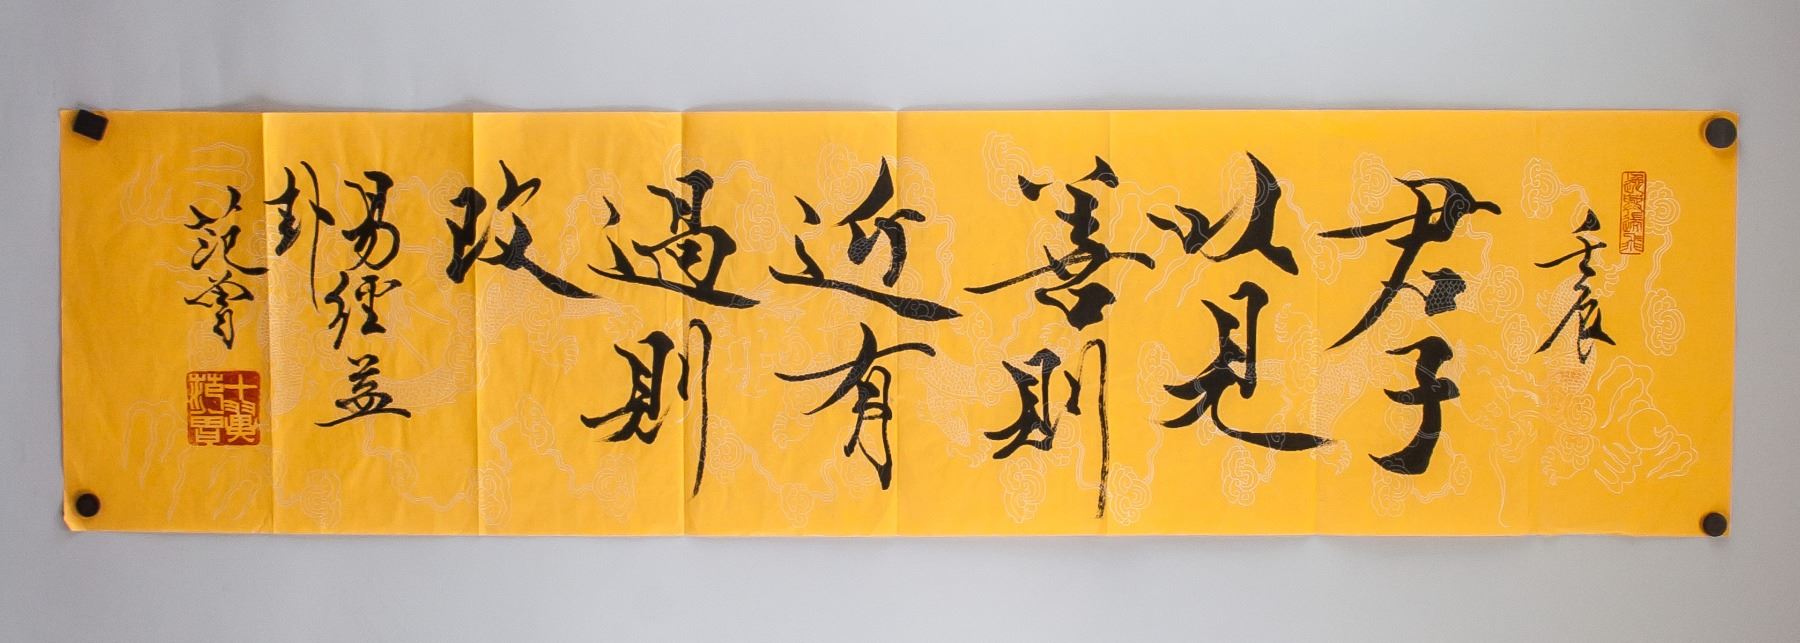 壬辰
君子
以見
善則
近有
過則
改
易經益
卦
范曾
十翼
范曾